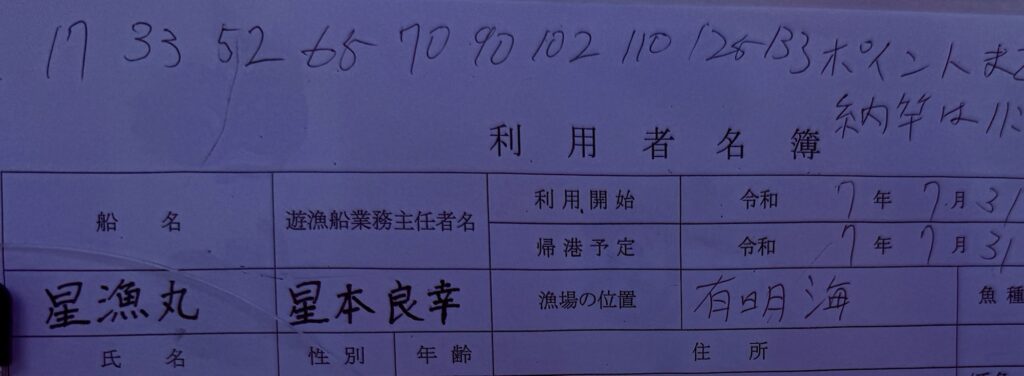 17 33 52 68 70 90 102 110 128 133 ポイントまで
納竿は11:
利用者名簿
船名 遊漁船業務主任者名 利用開始 令和 7年 7月 31
帰港予定 令和 7年 7月 31
星漁丸 星本良幸 漁場の位置 有明海 魚種
氏名 性別 年齢 住所